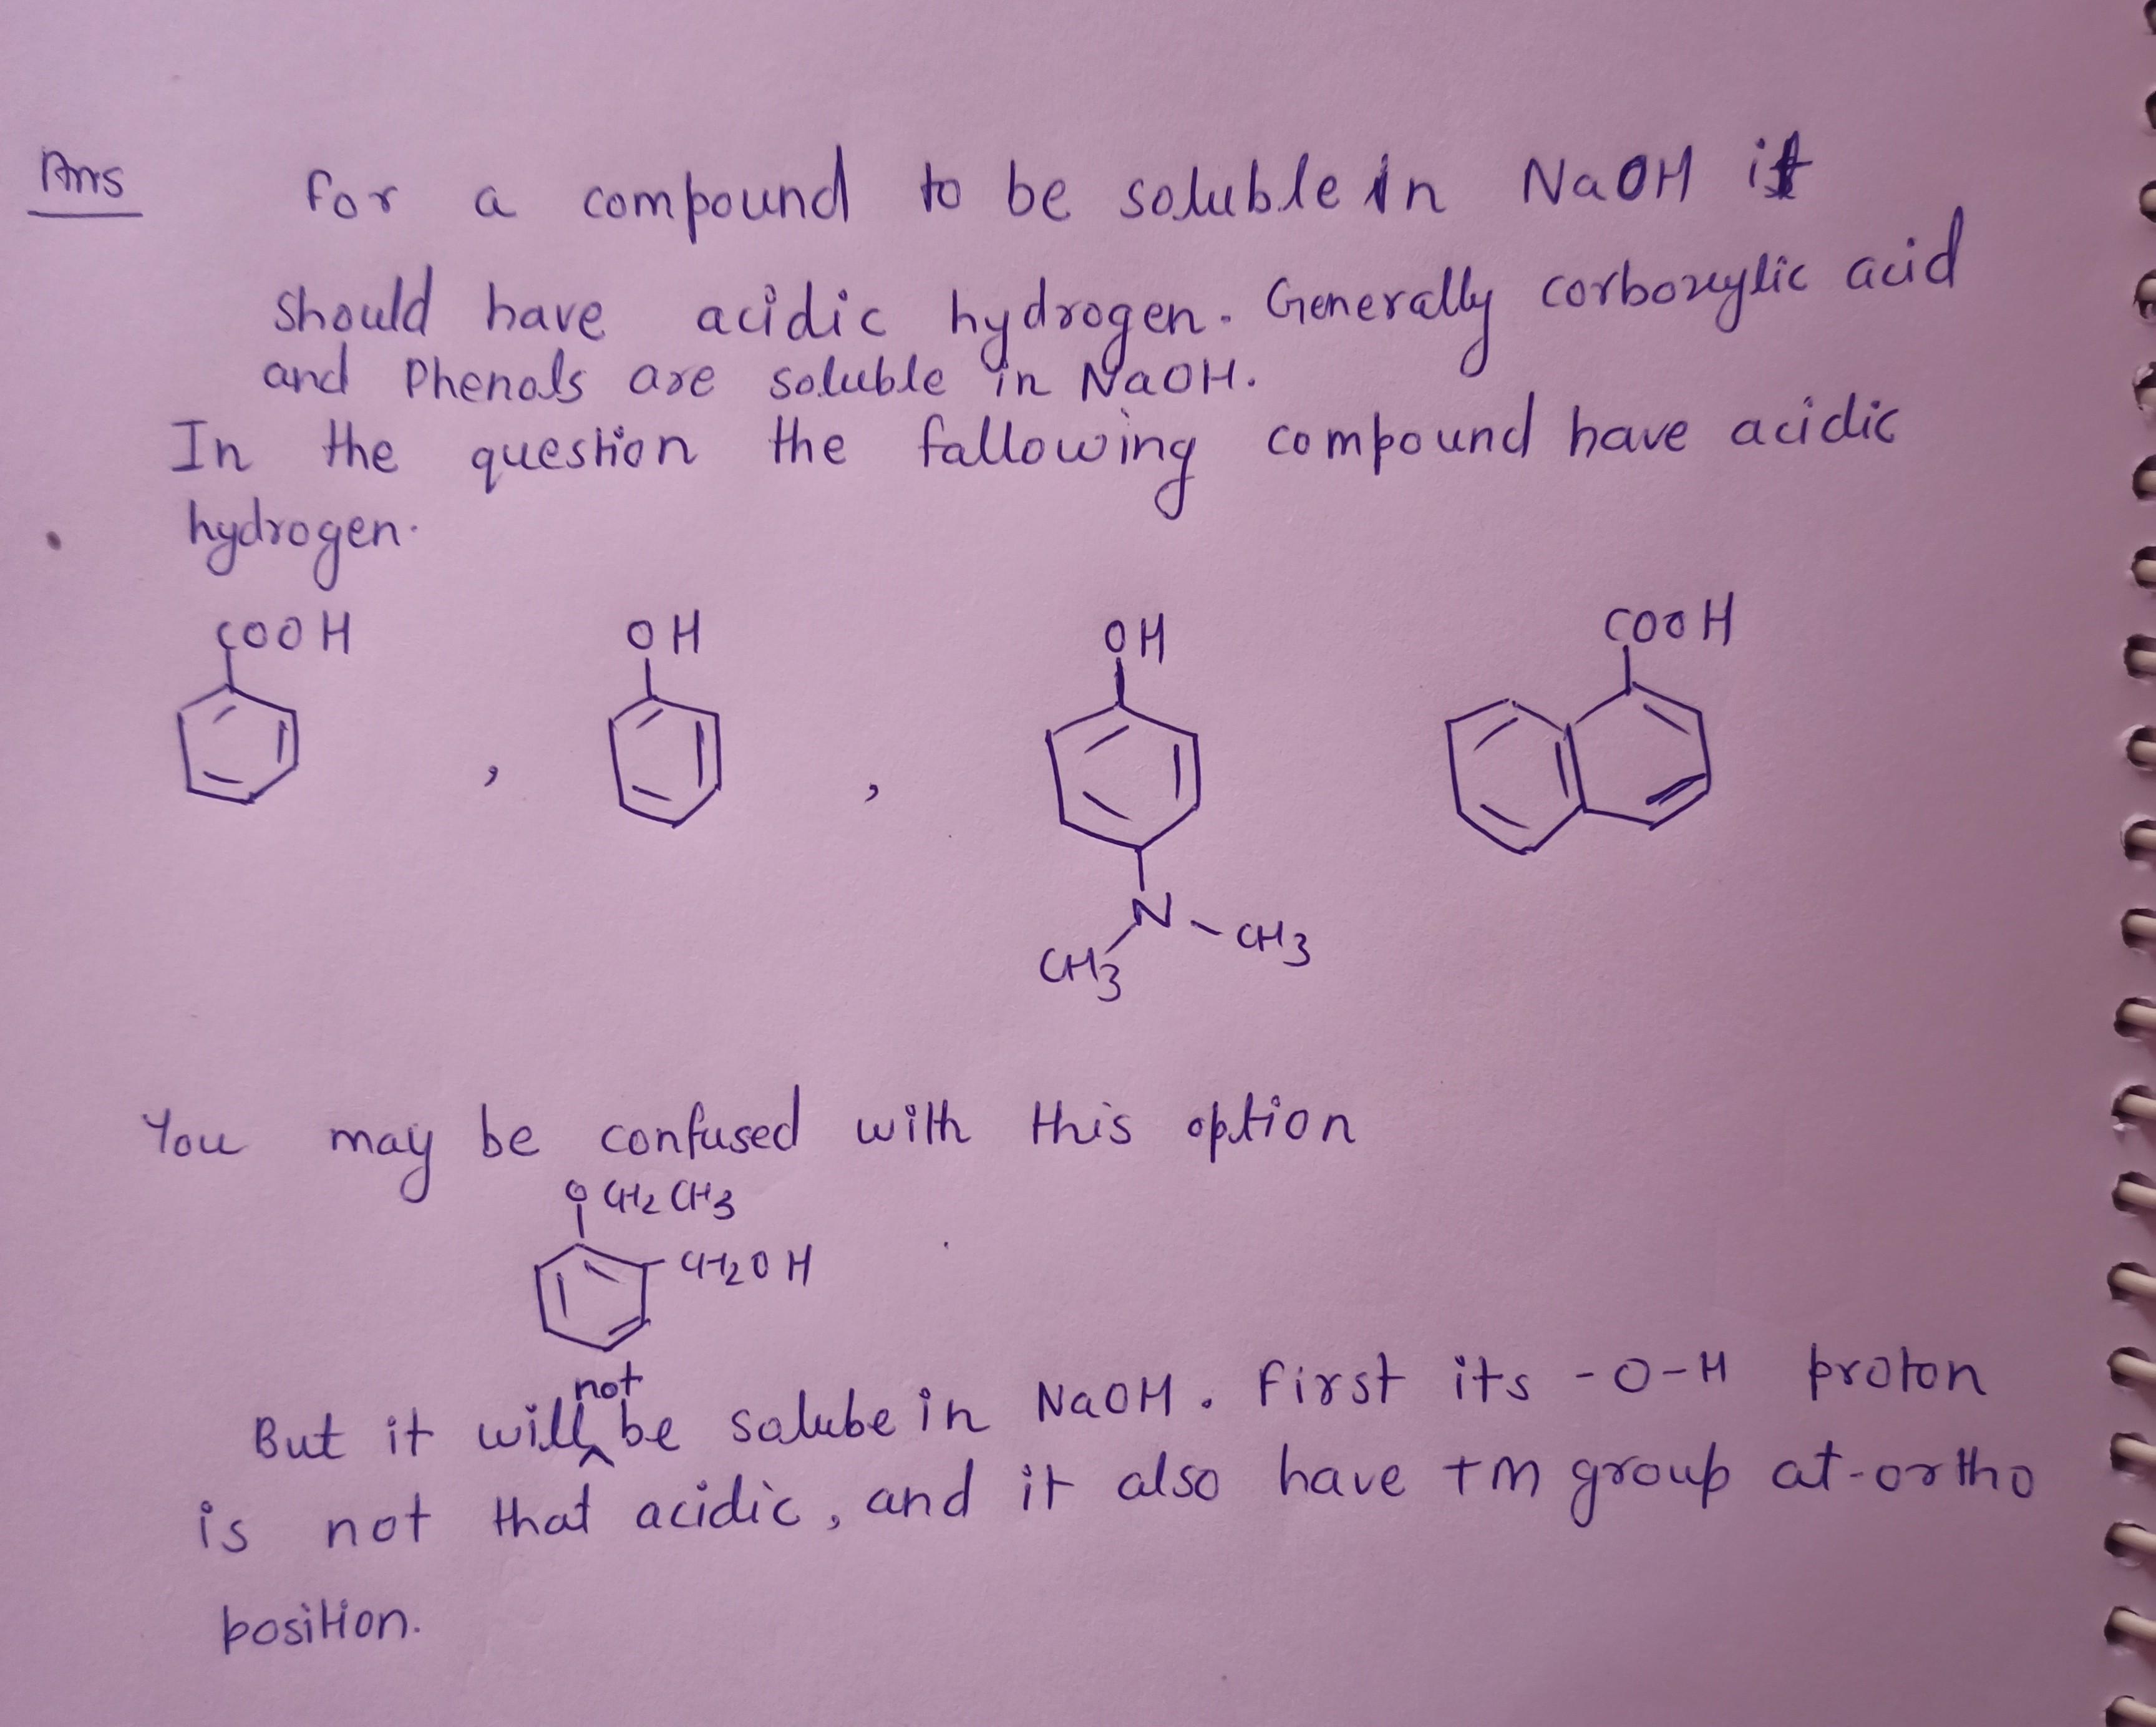 Ans For a compound to be soluble in NaOH it
should have acidic hydrogen. Generally corboxylic acid
and Phenols are soluble in NaOH.
In the question the fallowing compound have acidic
hydrogen.
COOH OH OH COOH
, ,
N
CH3 CH3
You may be confused with this option
OCH2CH3
CH2OH
not
But it will be salube in NaOH. First its -O-H proton
is not that acidic, and it also have +m group at-ortho
position.